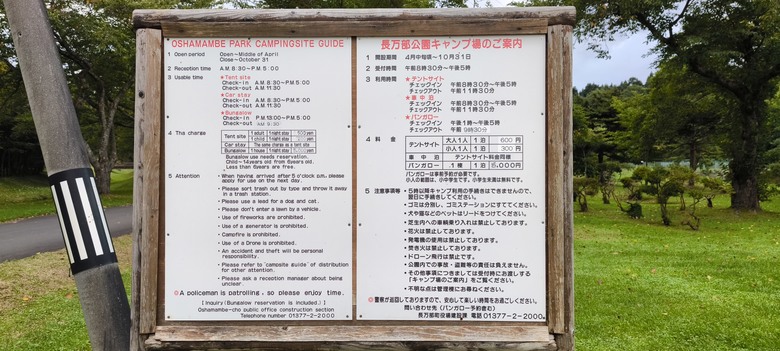 OSHAMAMBE PARK CAMPINGSITE GUIDE
1 Open period Open~Middle of April
Close~October 31
2 Reception time A.M 8:30~P.M.5:00
3 Usable time ★Tent site
Check-in A.M.8:30~P.M.5:00
Check-out A.M.11:30
★Car stay
Check-in A.M.8:30~P.M.5:00
Check-out A.M.11:30
★Bungalow
Check-in P.M.13:00~P.M.5:00
Check-out AM 9:30
4 The charge
Tent site 1 adult 1 night stay yen
1 child 1 night stay yen
Car stay The same charge as a tent site
Bungalow 1 house 1 night stay yen
Bungalow use needs reservation.
Child~14years old from 6years old.
Less than 6years are free.
5 Attention ・When having arrived after 5 o'clock p.m., please
apply for use on the next day.
・Please sort trash out by type and throw it away
in a trash station.
・Please use a lead for a dog and cat.
・Please don't enter a lawn by a vehicle.
・Use of fireworks are prohibited.
・Use of a generator is prohibited.
・Campfire is prohibited.
・Use of a Drone is prohibited.
・An accident and theft will be personal
responsibility.
・Please refer to "campsite guide" of distribution
for other attention.
・Please ask a reception manager about being
unclear.
◎A policeman is patrolling, so please enjoy time.
[Inquiry (Bungalow reservation is included.)]
Oshamambe-cho public office construction section
Telephone number 01377-2-2000
長万部公園キャンプ場のご案内
1 開設期間 4月中旬頃~10月31日
2 受付時間 午前8時30分~午後5時
3 利用時間 ★テントサイト
チェックイン 午前8時30分~午後5時
チェックアウト 午前11時30分
★車中泊
チェックイン 午前8時30分~午後5時
チェックアウト 午前11時30分
★バンガロー
チェックイン 午後1時~午後5時
チェックアウト 午前9時30分
4 料金
テントサイト 大人1人 1泊 600円
小人1人 1泊 300円
車中泊 テントサイト料金同様
バンガロー 1棟 1泊 5,000円
バンガローは事前予約が必要です。
小人の範囲は、小中学生です。小学生未満は無料です。
5 注意事項等 ・5時以降キャンプ利用の手続きはできませんので、
翌日に手続きしてください。
・ゴミは分別し、ゴミステーションにすててください。
・犬や猫などのペットはリードをつけてください。
・芝生内への車輌乗り入れは禁止しております。
・花火は禁止しております。
・発電機の使用は禁止しております。
・焚き火は禁止しております。
・ドローン飛行は禁止です。
・公園内での事故・盗難等の責任は負えません。
・その他事項につきましては受付時にお渡しする
「キャンプ場のご案内」をご覧ください。
・不明な点は管理棟にお尋ねください。
◎警察が巡回しておりますので、安心して楽しい時間をお過ごしください。
問い合わせ先(バンガロー予約含む)
長万部町役場建設課 電話 01377-2-2000